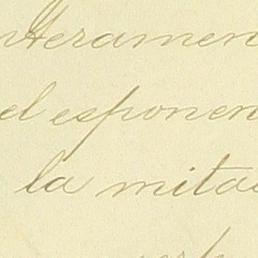 nteramen
el esponen
la mita